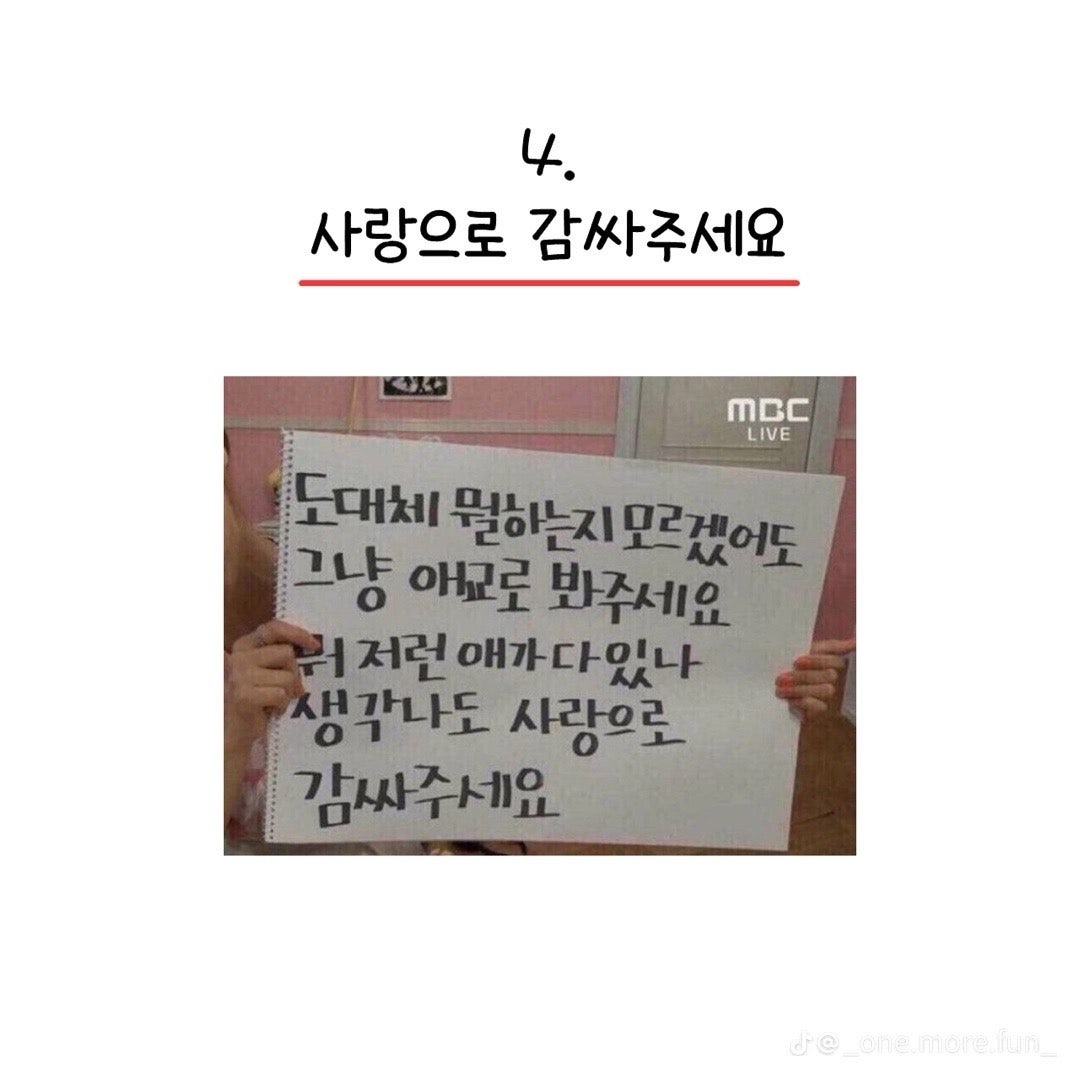 4.
사랑으로 감싸주세요
MBC
LIVE
도대체 뭘하는지 모르겠어도
그냥 애교로 봐주세요
뭐 저런 애가 다 있나
생각나도 사랑으로
감싸주세요
@_one.more.fun_